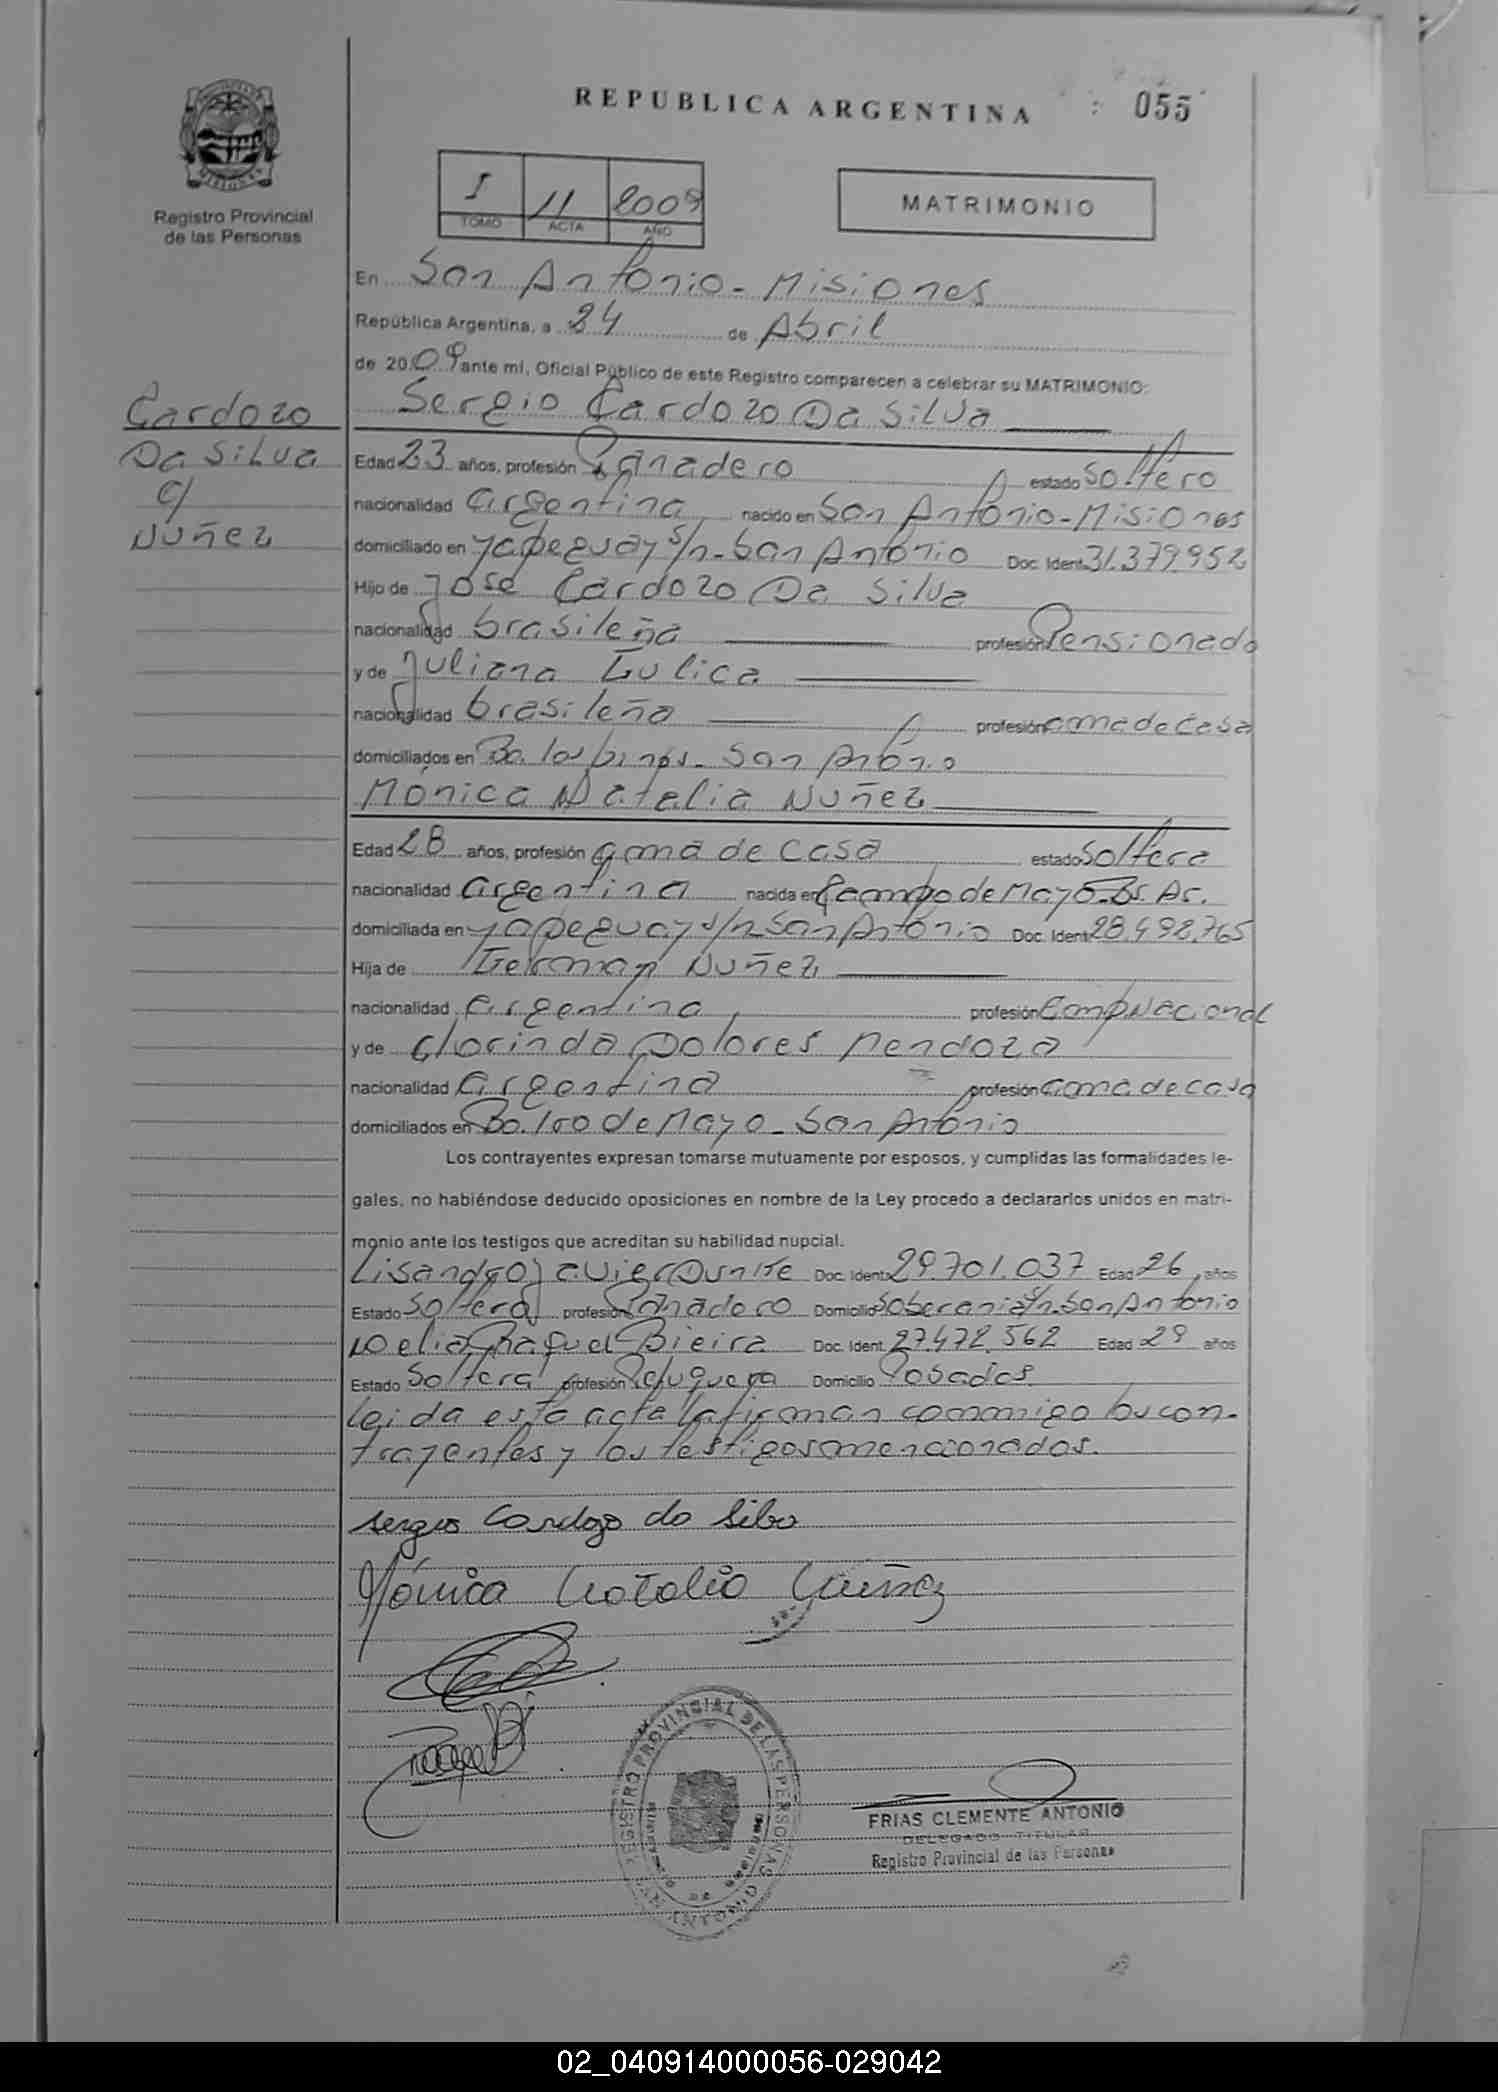 REPUBLICA ARGENTINA
055
Registro Provincial
de las Personas
I 11 2009
TOMO ACTA AÑO
MATRIMONIO
En San Antonio - Misiones
República Argentina, a 24 de Abril
de 2009 ante mí, Oficial Público de este Registro comparecen a celebrar su MATRIMONIO:
Cardozo
Da Silva
c/
Nuñez
Sergio Cardozo Da Silva
Edad 23 años, profesión Panadero estado Soltero
nacionalidad argentina nacido en San Antonio - Misiones
domiciliado en Yapeguay s/n - San Antonio Doc. Ident. 31.379.952
Hijo de Jose Cardozo Da Silva
nacionalidad brasileña profesión Pensionado
y de Juliana
nacionalidad brasileña profesión ama de casa
domiciliados en Bo. los pinos - San Antonio
Mónica Natalia Nuñez
Edad 28 años, profesión ama de casa estado Soltera
nacionalidad argentina nacida en Campo de Mayo - Bs. As.
domiciliada en Yapeguay s/n San Antonio Doc. Ident. 28.492.765
Hija de German Nuñez
nacionalidad argentina profesión Emp Nacional
y de Clorinda Dolores Mendoza
nacionalidad argentina profesión ama de casa
domiciliados en Bo. 1ro de Mayo - San Antonio
Los contrayentes expresan tomarse mutuamente por esposos, y cumplidas las formalidades le-
gales, no habiéndose deducido oposiciones en nombre de la Ley procedo a declararlos unidos en matri-
monio ante los testigos que acreditan su habilidad nupcial.
Lisandro Javier Duarte Doc. Ident. 29.701.037 Edad 26 años
Estado Soltero profesión Panadero Domicilio Soberania s/n San Antonio
Delia Raquel Bieira Doc. Ident. 27.472.562 Edad 29 años
Estado Soltera profesión Peluquera Domicilio Posadas
leida esta acta la firman conmigo los con-
trayentes y los testigos mencionados.
Sergio Cardozo da Silva
Mónica Natalia Nuñez
REGISTRO PROVINCIAL DE LAS PERSONAS
SAN ANTONIO
FRIAS CLEMENTE ANTONIO
DELEGADO TITULAR
Registro Provincial de las Personas
02_040914000056-029042